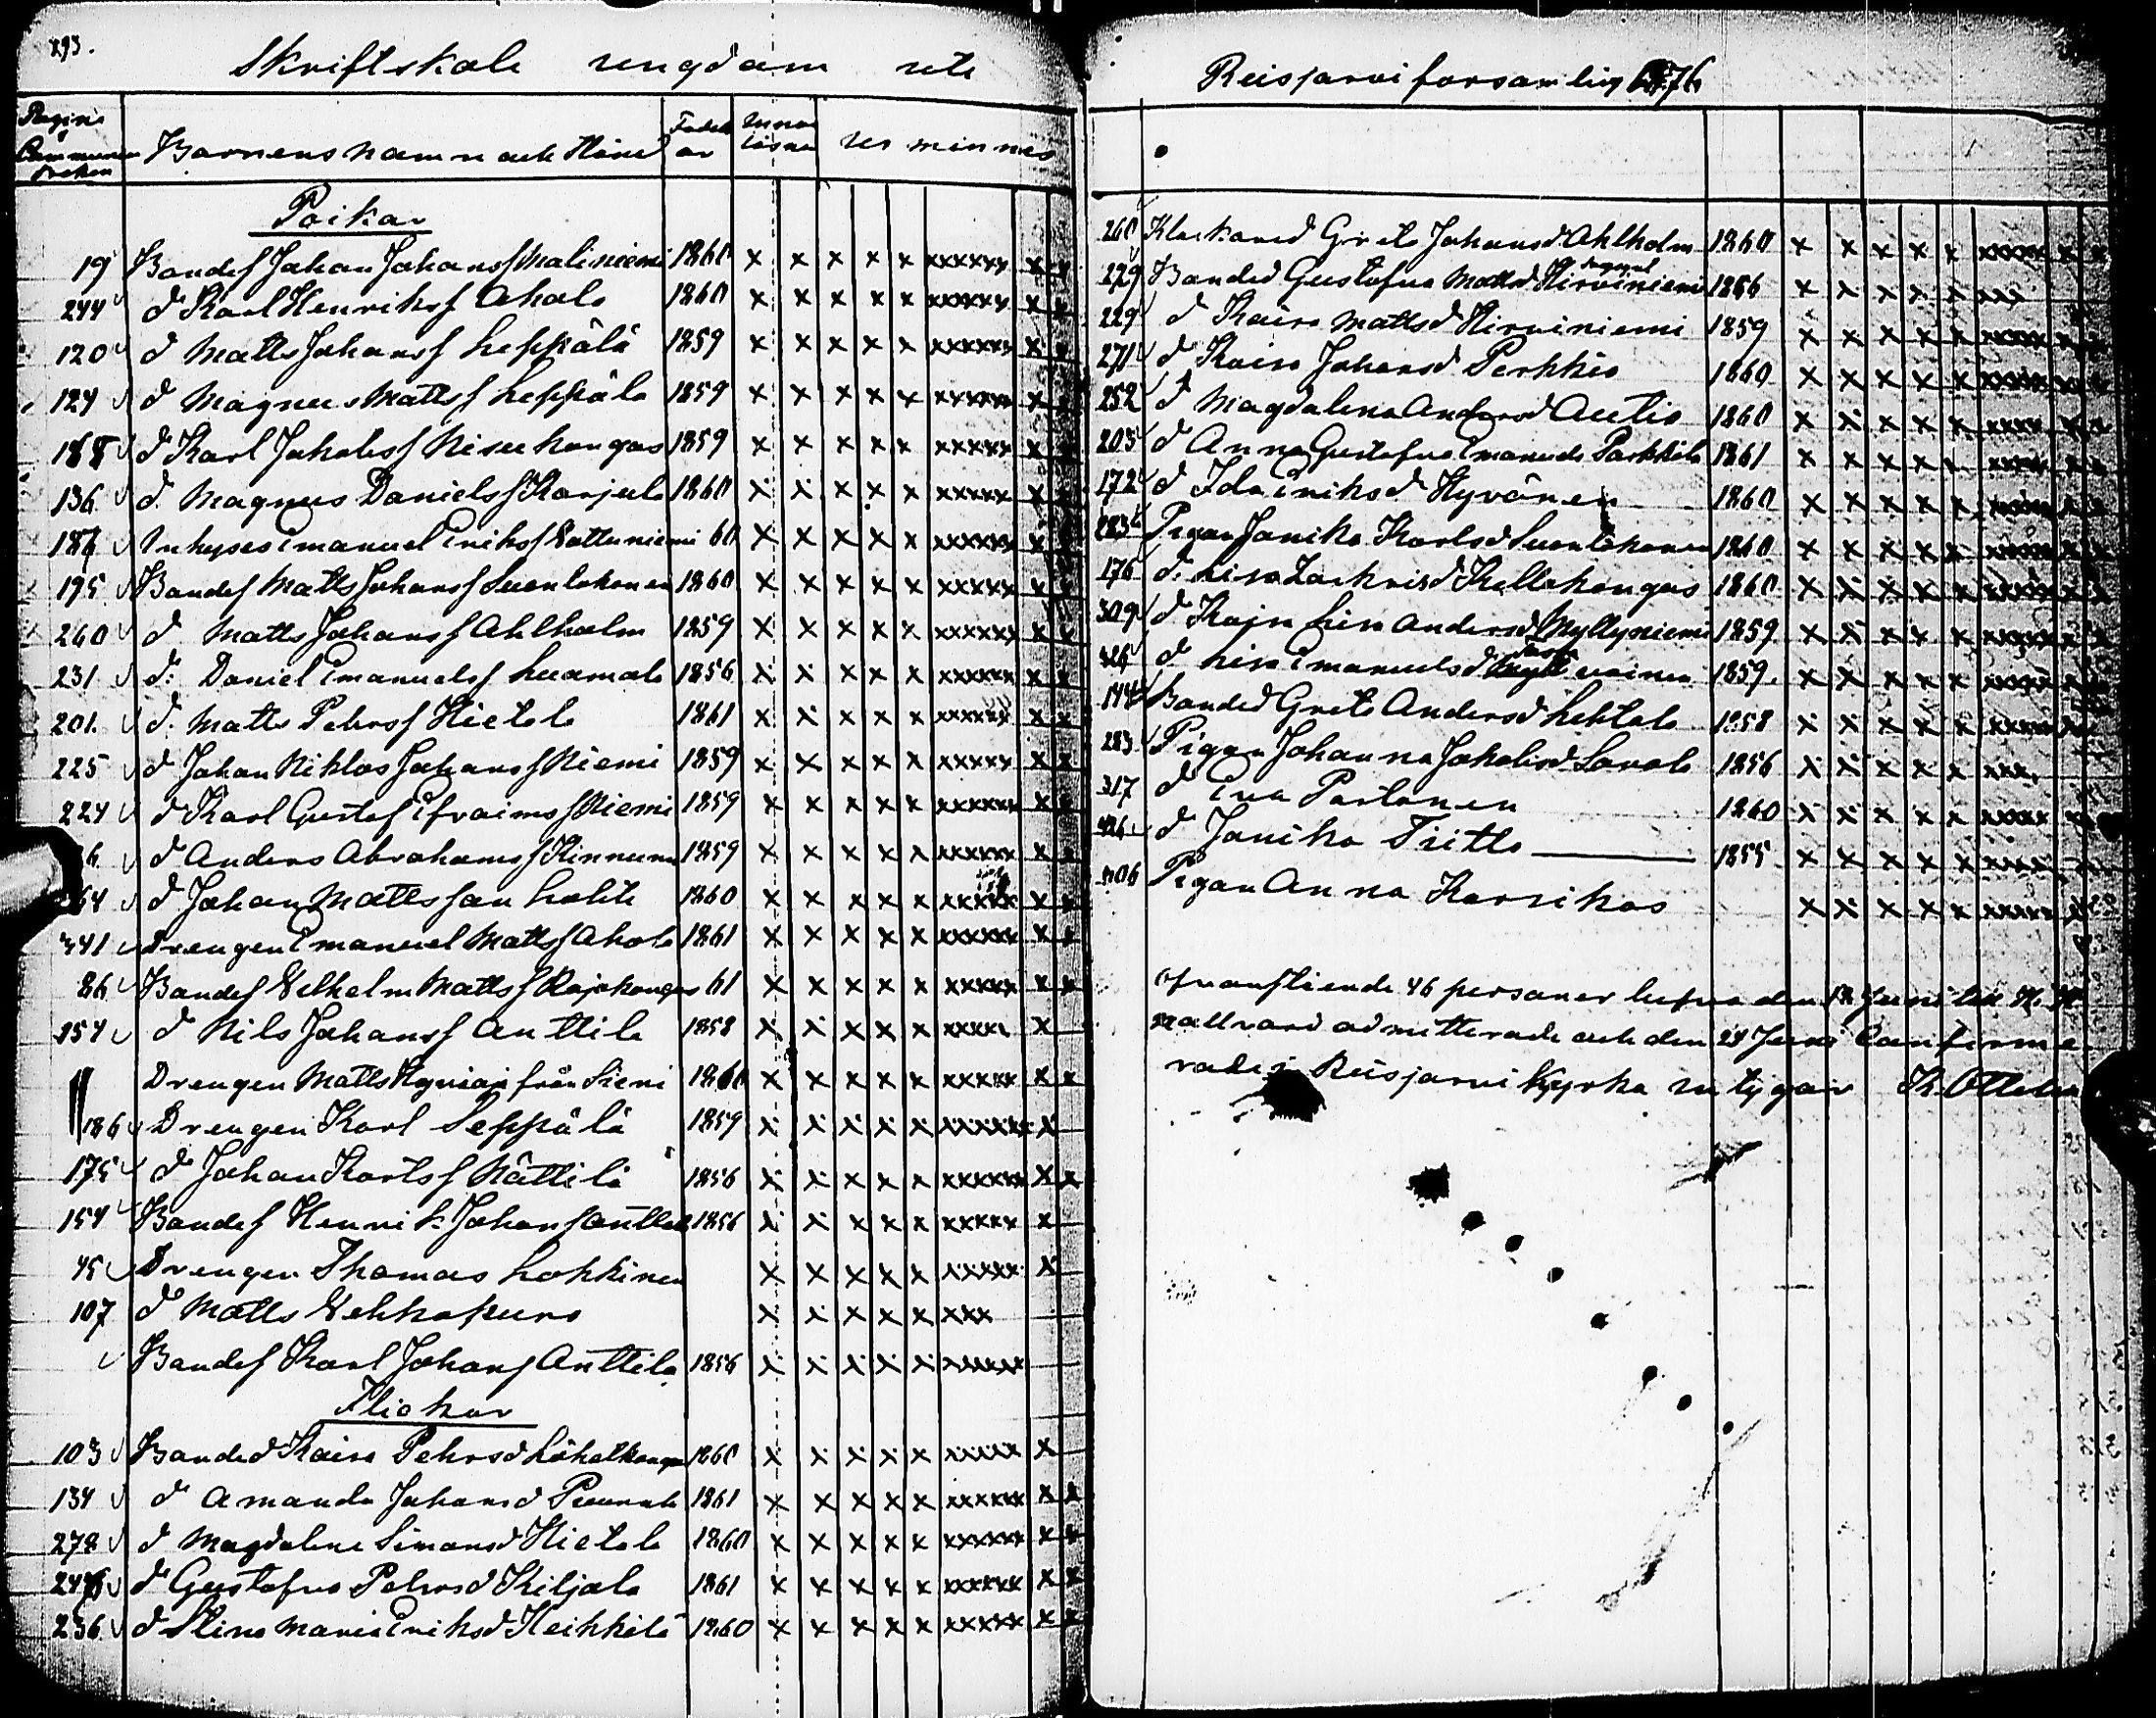 293.
Skriftskole ungdom ute
Pagina i Communion boken
Barnens namn och Hemv
Fodelse ar
Innan läsna
ur minnes
Poikar
19 Bondes Johan Johanss Maliniemi 1860 x x x x x xxxxxx x x
244 d Karl Henrikss Ahola 1860 x x x x x xxxxxx x x
120 d Matts Johanss Leppälä 1859 x x x x x xxxxxx x x
124 d Magnus Mattss Leppälä 1859 x x x x x xxxxxx x x
188 d Karl Jakobss Kisukangas 1859 x x x x x xxxxxx x x
136 d. Magnus Danielss Karjula 1860 x x x x x xxxxxx x x
187 Inhyses Emanuel Erikss Vattuniemi 60 x x x x x xxxxxx x x
195 Bondes Matts Johanss Suontakanen 1860 x x x x x xxxxxx x x
260 d Matts Johanss Ahlholm 1859 x x x x x xxxxxx x x
231 d: Daniel Emanuelss Luomala 1856 x x x x x xxxxxx x x
201. d. Matts Pehrss Hietala 1861 x x x x x xxxxxx x x
225 d Johan Niklas Johanss Niemi 1859 x x x x x xxxxxx x x
224 d Karl Gustaf Efraimss Niemi 1859 x x x x x xxxxxx x x
6. d Anders Abrahamss Kinnunen 1859 x x x x x xxxxxx x x
264 d Johan Mattsson Lohti 1860 x x x x x xxxxxx x x
341 Drengen Emanuel Mattss Ahola 1861 x x x x x xxxxxx x x
86 Bondes Vilhelm Mattss Rajakangas 61 x x x x x xxxxxx x x
154 d Nils Johanss Anttila 1858 x x x x x xxxxx x
Drengen Matts från Sievi 1860 x x x x x xxxxx x x
186 Drengen Karl Seppälä 1859 x x x x x xxxxxx x
175 d Johan Karlss Mättilä 1856 x x x x x xxxxxx x x
154 Bondes Henrik Johanss Anttila 1856 x x x x x xxxxx x
45 Drengen Thomas Lokkinen x x x x x xxxxx x
107 d Matts Vehkapuro x x x x x xxx
Bondes Karl Johanss Anttila 1856 x x x x x xxxxxx
Flickor
103 Bonded Kaisa Pehrsd Löhetkangas 1860 x x x x x xxxxx x
134 d Amanda Johansd Puurula 1861 x x x x x xxxxxx x x
278 d Magdalena Simonsd Hietala 1860 x x x x x xxxxxx x x
247 d Gustafva Pehrsd Kiljala 1861 x x x x x xxxxxx x x
236. d Stina Maria Eriksd Heikkilä 1860 x x x x x xxxxxx x x
Reisjarvi forsamling 1876
260 Klockared Greta Johansd Ahlholm 1860 x x x x x xxxxx x x
229 Bonded Gustafva Mattsd Hirviniemi 1856 x x x x x xxx
229 d Kaisa Mattsd Hirviniemi 1859 x x x x x xxxxx x x
271 d Kaisa Johansd Perkkiö 1860 x x x x x xxxxx x x
252 d Magdalena Andersd Autio 1860 x x x x x xxxx x x
203 d Anna Gustafva Emanuelsd Parkkila 1861 x x x x x xxxxx x x
172 d Ida Eriksd Hyvönen 1860 x x x x x xxxxx x x
283 Pigan Janika Karlsd Suontakanen 1860 x x x x x xxxxx x x
176 d. Lisa Zachrisd Kellokangas 1860 x x x x x xxxxx x x
309 d Kajsa Lisa Andersd Myllyniemi 1859. x x x x x xxxxx x x
326 d Lisa Emanuelsd 1859. x x x x x xxxxx x x
144 Bonded Greta Andersd Lehtola 1858 x x x x x xxxxx x x
283. Pigan Johanna Jakobsd Savola 1856 x x x x x xxx.
317 d Eva Partanen 1860 x x x x x xxxxx x x
d Janika Tiitto 1855 x x x x x xxxxx
406 Pigan Anna Karsikas x x x x x xxxxx x
Ofvanstående 46 personer blefvo den 18 Juni till H. H.
Nattvard admitterade och den 24 Juni Confirme
rade i Reisjarvi Kyrka intygar K. Ottelin